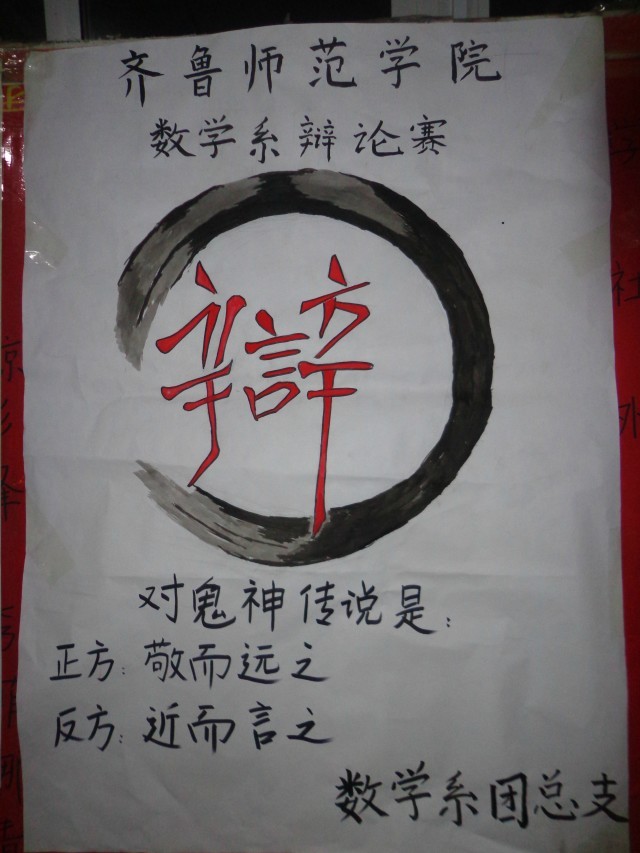 齐鲁师范学院
数学系辩论赛
辯
对鬼神传说是：
正方：敬而远之
反方：近而言之
数学系团总支